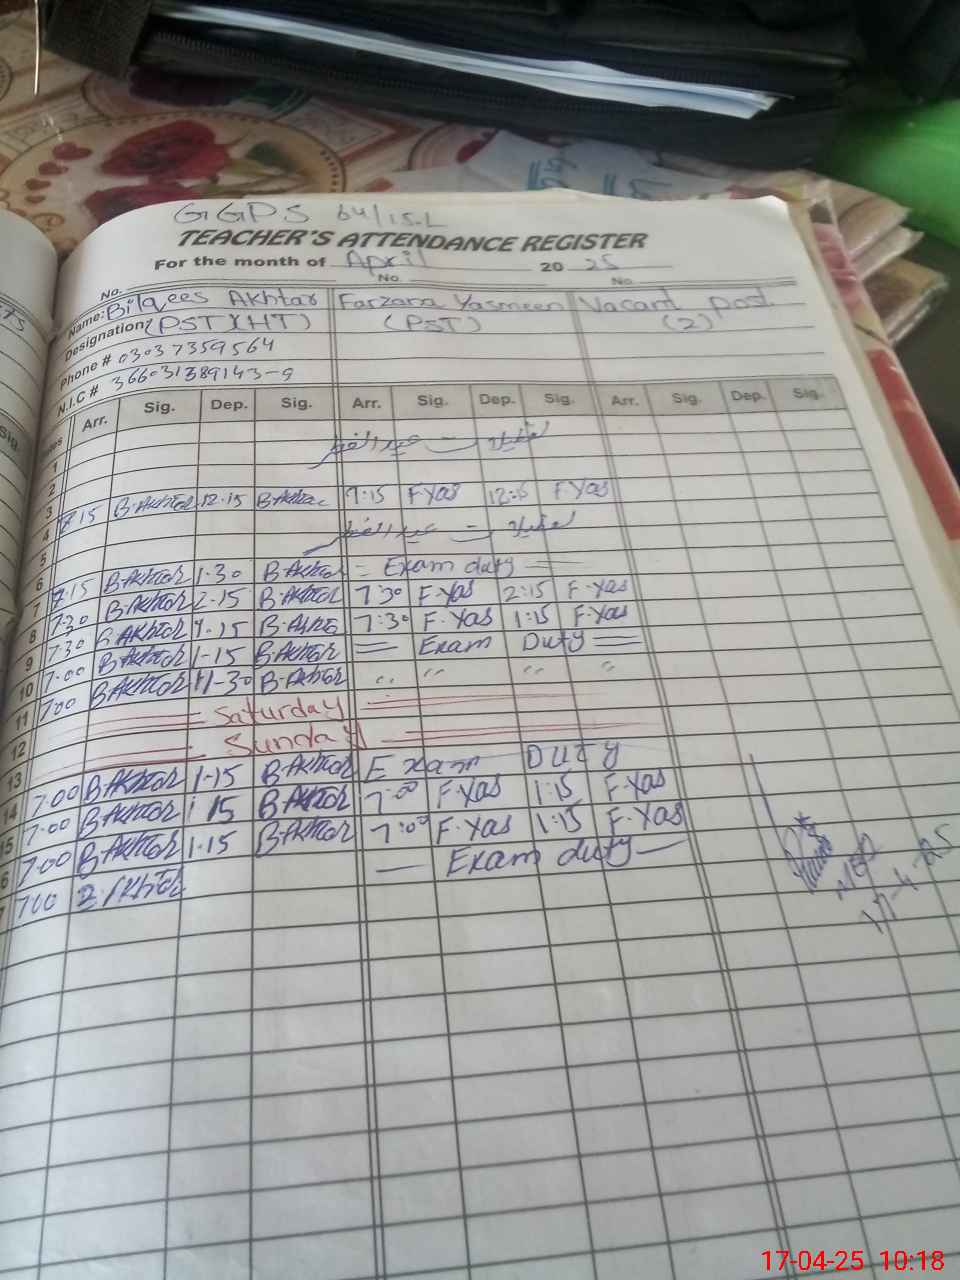 GGPS 64/15.L
TEACHER'S ATTENDANCE REGISTER
For the month of April 20 25
No. No. No.
Name: Bilqees Akhtar Farzana Yasmeen Vacant post
Designation: (PST)(HT) (PST) (2)
Phone # 03037359564
N.I.C # 36603
Arr. Sig. Dep. Sig. Arr. Sig. Dep. Sig. Arr. Sig. Dep. Sig.
1
2
3 8:15 B.Akhtar 12.15 B.Akhtar F.Yas F.Yas
4
5
6
7 7.15 B.Akhtar 1.30 B.Akhtar = Exam duty =
8 7.30 B.Akhtar 2.15 B.Akhtar 7:30 F.Yas 2:15 F.Yas
9 7.30 B.Akhtar 1.15 7:30 F.Yas 1:15 F.Yas
10 7.00 B.Akhtar 1.15 B.Akhtar = Exam Duty =
11 7.00 B.Akhtar 11-30 B.Akhtar " " " "
12 Saturday
13 Sunday
14 7.00 B.Akhtar 1.15 B.Akhtar Exam DUTY
15 7.00 B.Akhtar 1.15 B.Akhtar 7:00 F.Yas 1:15 F.Yas
6 7.00 B.Akhtar 1.15 B.Akhtar 7:00 F.Yas 1:15 F.Yas
7.00 B.Akhtar — Exam duty —
17-4-25
17-04-25 10:18